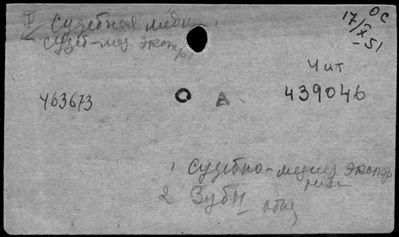 V Судебная медиц.
Судеб-мед экспер
ОС
17/X-51
Чит
У63673
О А
439046
1 Судебно-медиц экспер
2 Зубы общ